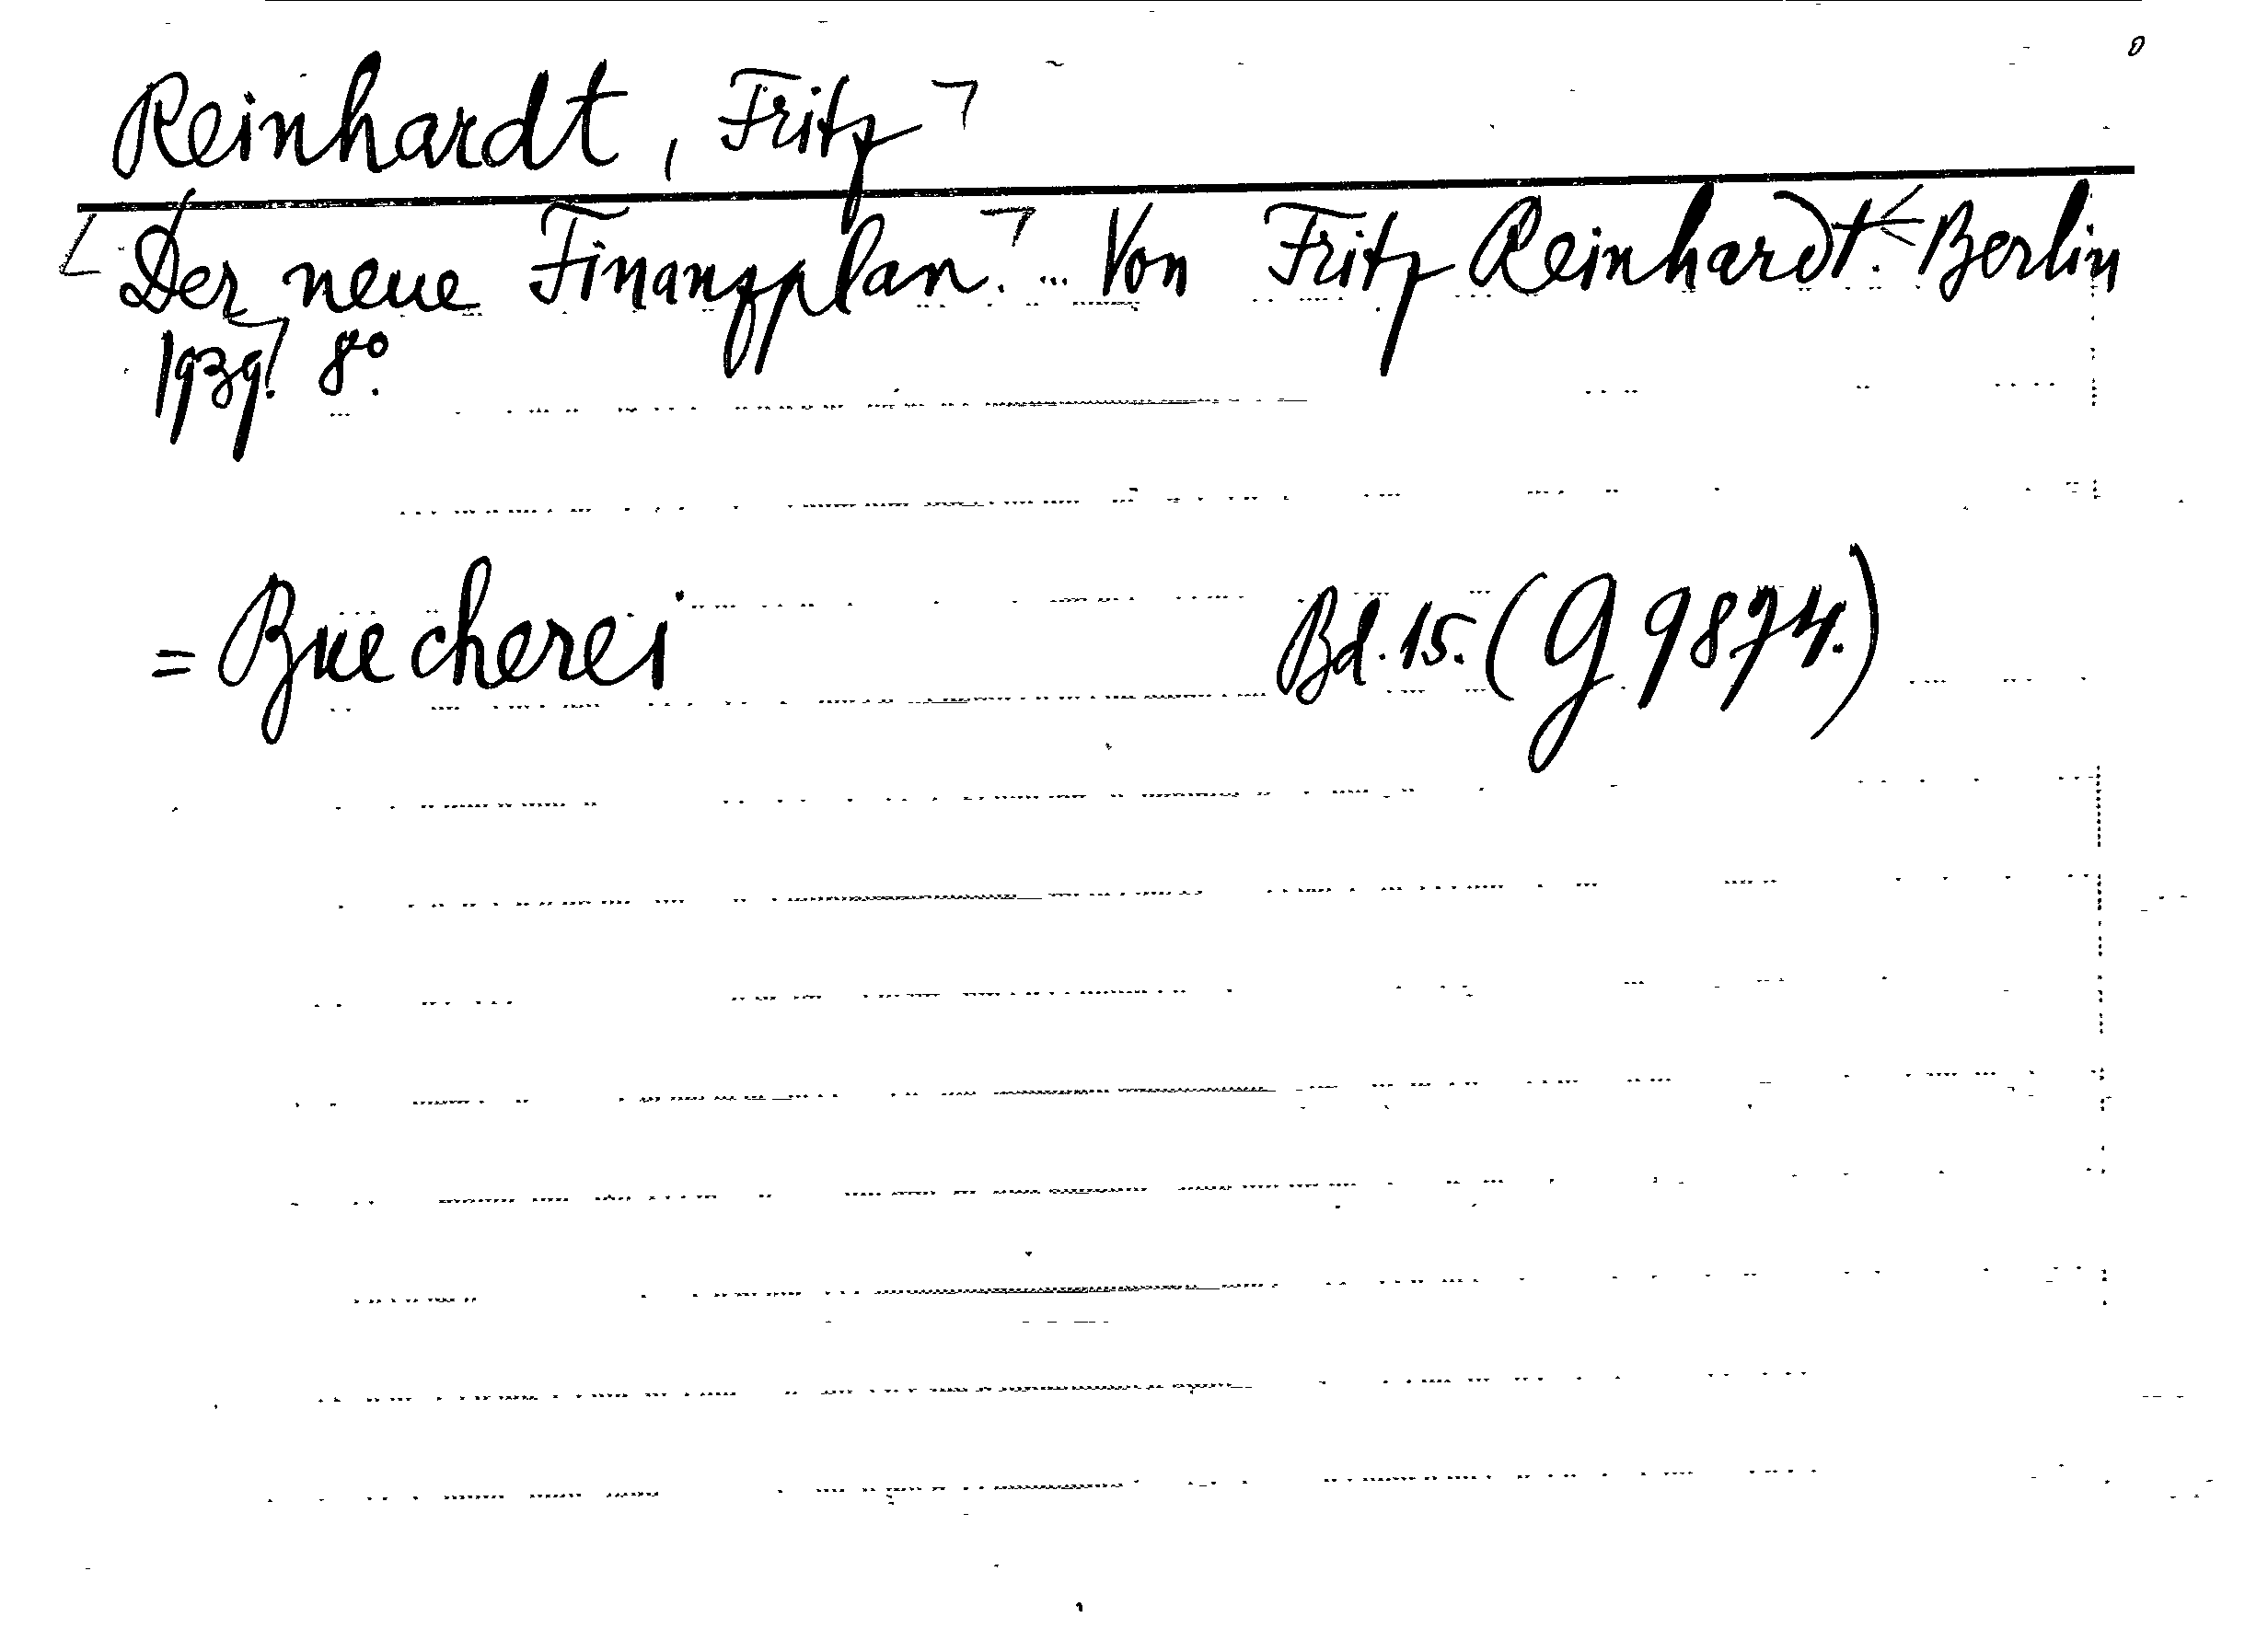 Reinhardt, Fritz
Der neue Finanzplan. ... Von Fritz Reinhardt. Berlin
1939. 8°.
= Buecherei Bd. 15. (G 9874.)